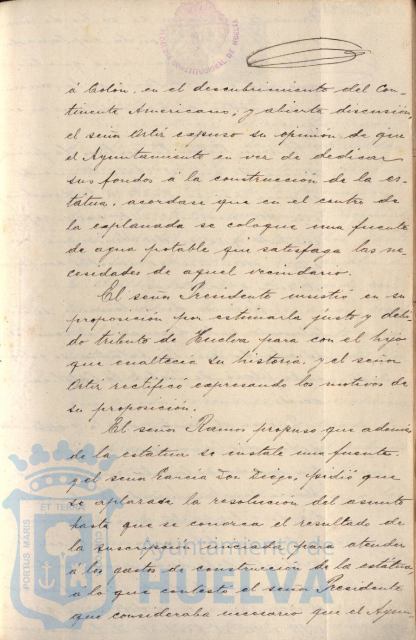 á Colón, en el descubrimiento del Con-
tinente Americano; y abierta discusión,
el señor Ortiz expuso su opinión de que
el Ayuntamiento en vez de dedicar
sus fondos á la construcción de la es-
tátua, acordase que en el centro de
la explanada se coloque una fuente
de agua potable que satisfaga las ne-
cesidades de aquel vecindario.
El señor Presidente insistió en su
proposición por estimarla justo y debi-
do tributo de Huelva para con el hijo
que enaltecia su historia, y el señor
Ortiz rectificó expresando los motivos de
su proposición.
El señor Ramos propuso que además
de la estátua se instale una fuente
y el señor García Don Diego, pidió que
se aplazase la resolución del asunto
hasta que se conozca el resultado de
la suscripción iniciada para atender
á los gastos de construcción de la estátua
á lo que contestó el señor Presidente
que consideraba necesario que el Ayun
PORTUS MARIS ET TERRAE
Ayuntamiento de
HUELVA